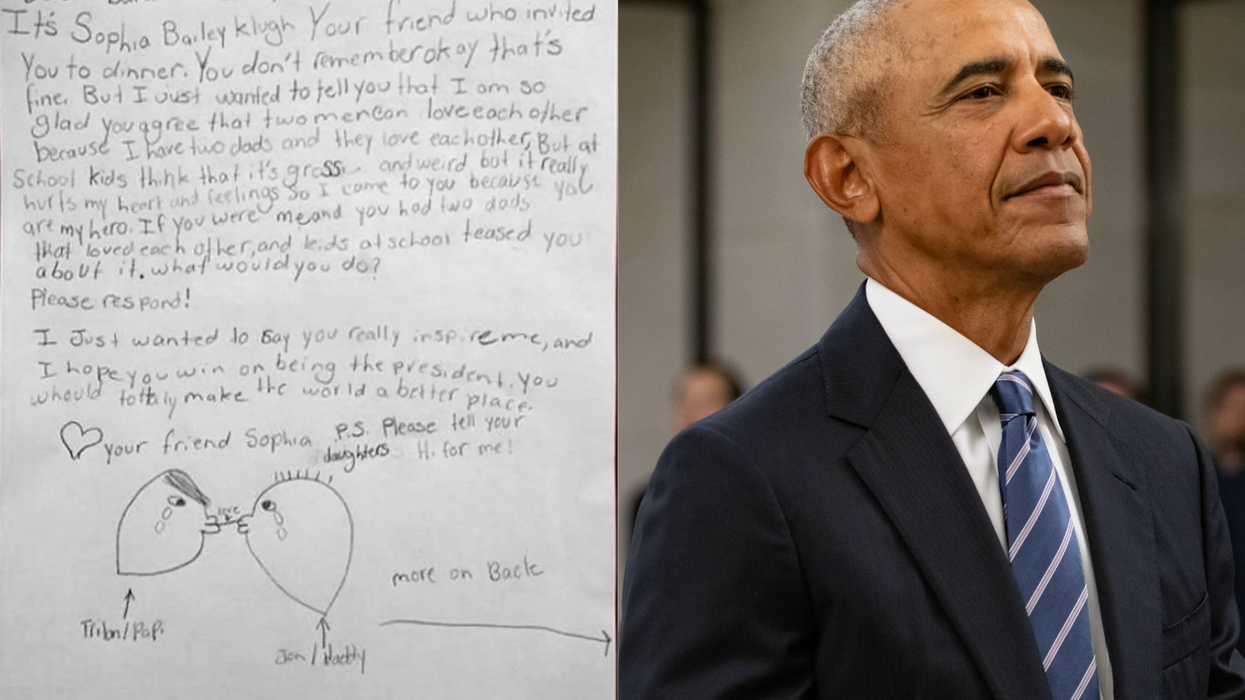 It's Sophia Bailey klugh Your friend who invited
You to dinner. You don't remember okay that's
fine. But I Just wanted to tell you that I am so
glad you agree that two men can love each other
because I have two dads and they love each other, But at
School kids think that it's gross and weird but it really
hurts my heart and feelings So I come to you because you
are my hero. If you were me and you had two dads
that loved each other, and kids at school teased you
about it. what would you do?
Please respond!
I Just wanted to say you really inspire me, and
I hope you win on being the president. You
whould totaly make the world a better place.
your friend Sophia
P.S. Please tell your
daughters Hi for me!
love
more on Back
Jon/Daddy